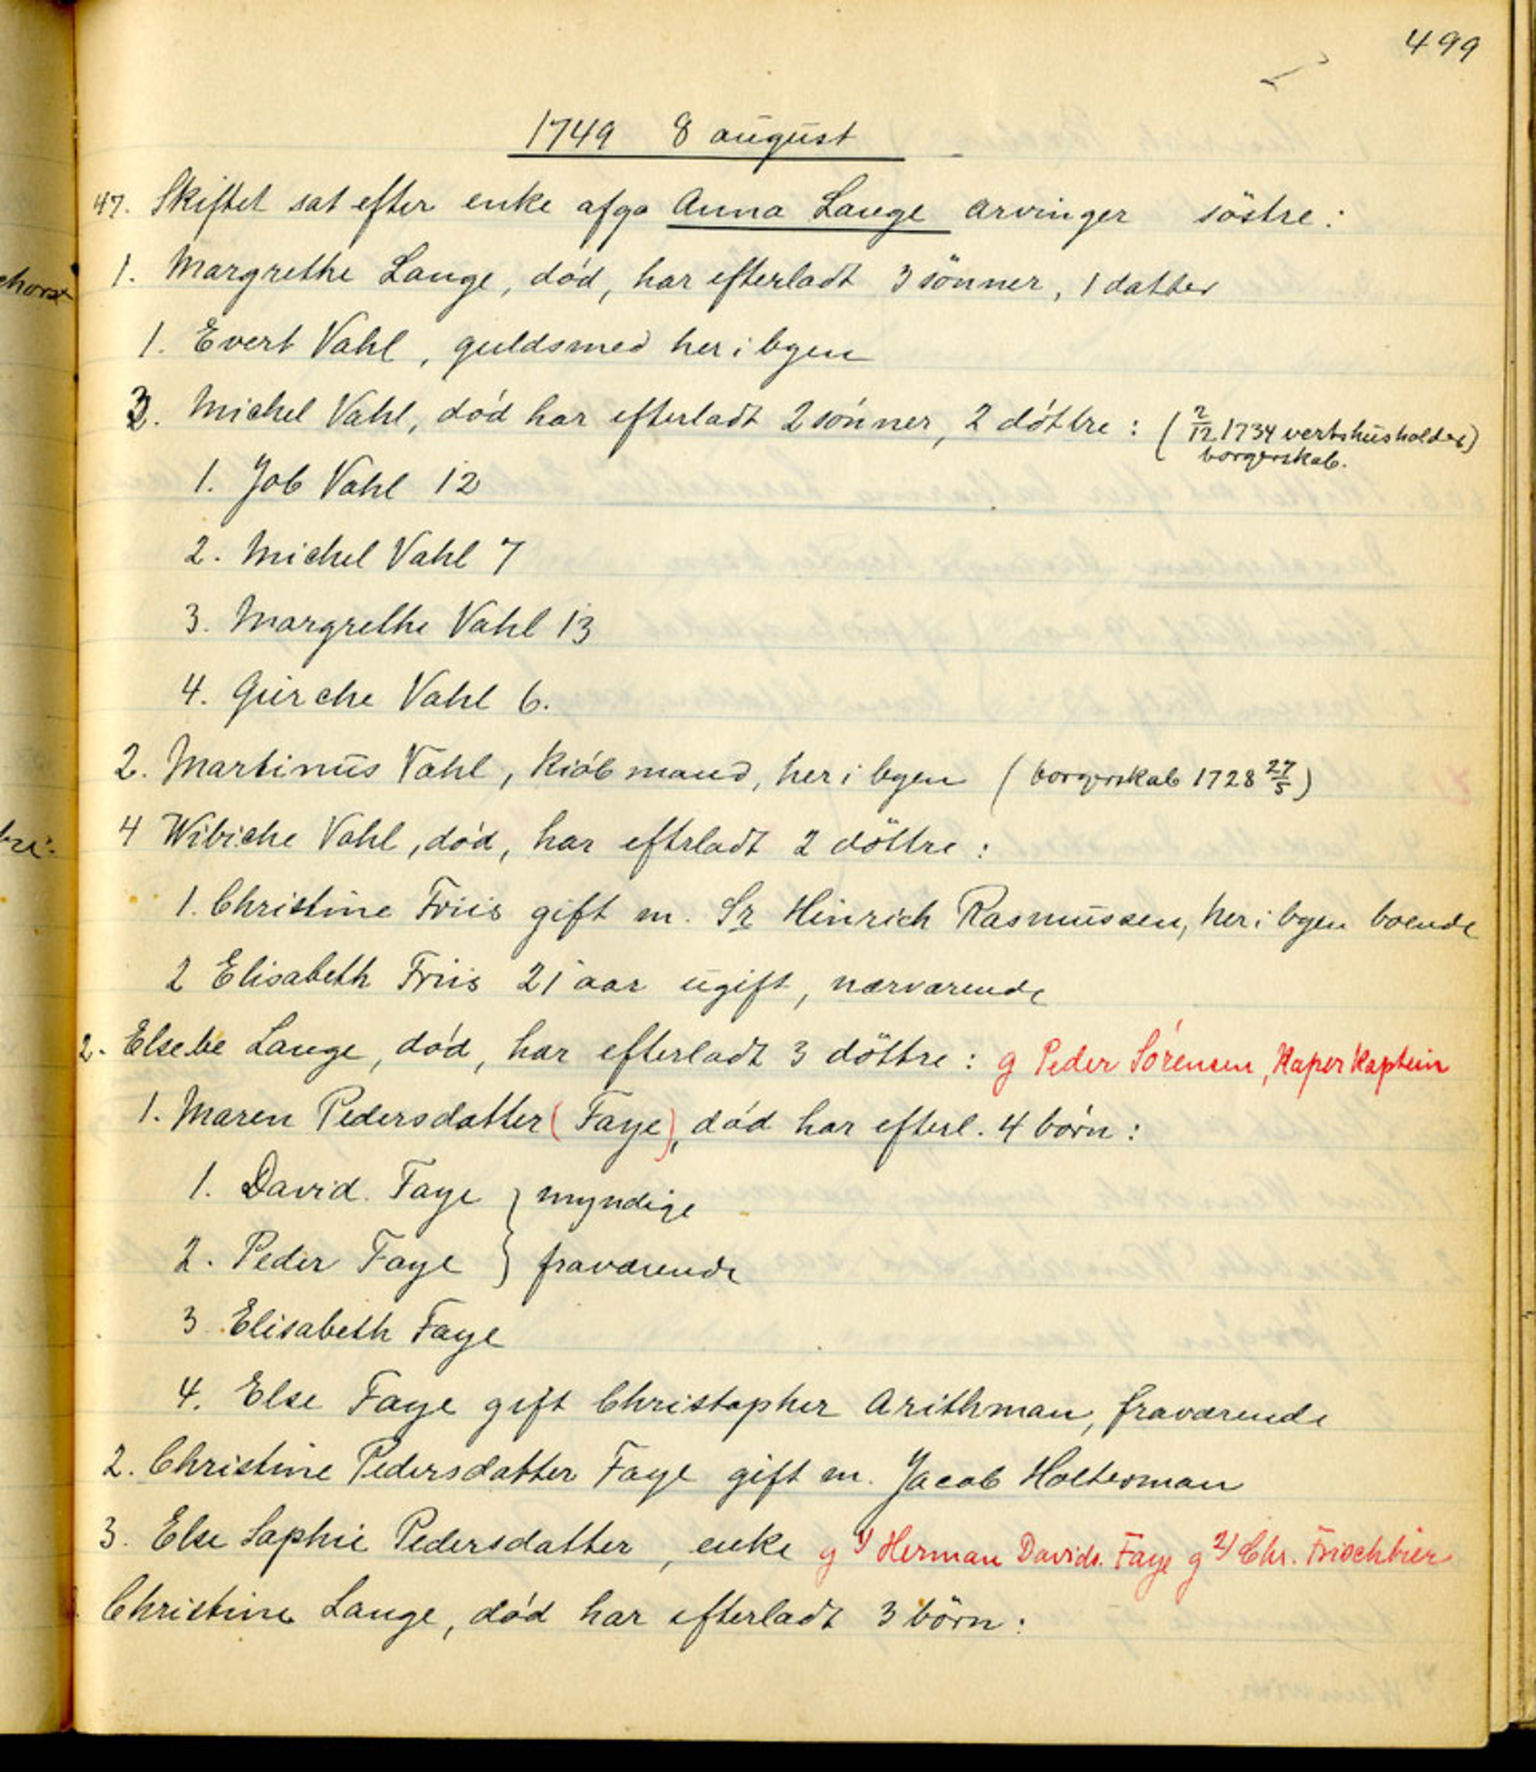 499
1749 8 august
47. Skiftet sat efter enke afga Anna Lange arvinger söstre:
1. Margrethe Lange, død, har efterladt 3 sönner, 1 datter
1. Evert Vahl, guldsmed her i byen
3. Michel Vahl, død har efterladt 2 sønner, 2 døttre: (2/12 1734 vertshusholder)
borgerskab.
1. Job Vahl 12
2. Michel Vahl 7
3. Margrethe Vahl 13
4. Gurche Vahl 6.
2. Martinus Vahl, kiøbmand, her i byen (borgerskab 1728 27/5)
4 Wibiche Vahl, død, har efterladt 2 döttre:
1. Christine Friis gift m. Sr Hinrich Rasmussen, her i byen boende
2 Elisabeth Friis 21 aar ugift, nærværende
2. Elsebe Lange, død, har efterladt 3 döttre: g Peder Sørensen, Kaper kaptein
1. Maren Pedersdatter (Faye), død har efterl. 4 børn:
1. David Faye } myndige
2. Peder Faye } fraværende
3 Elisabeth Faye
4. Else Faye gift Christopher Arithman, fraværende
2. Christine Pedersdatter Faye gift m. Jacob Holterman
3. Else Sophie Pedersdatter, enke g 1/ Herman Davids. Faye g 2/ Chr. Frischbier
Christine Lange, død har efterladt 3 börn: